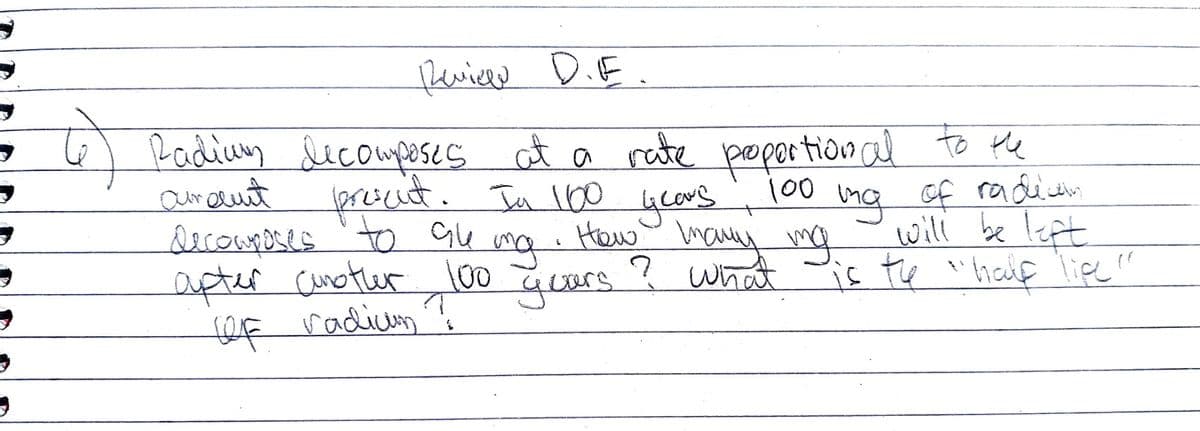 Review D.E.
6) Radium decomposes at a rate proportional to the
amount present. In 100 years, 100 mg of radium
decomposes to 96 mg. How many mg will be left
after another 100 years? What is the "half life"
of radium?